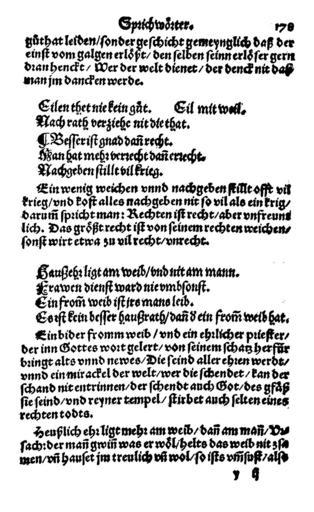 Sprichwörter. 178
gůt hat leiden/sonder geschicht gemeynglich daß der
einst vom galgen erlößt/den selben seinn erlöser gern
dran henckt/Wer der welt dienet/der denck nit daß
man jm dancken werde.
Eilen thet nie kein gůt. Eil mit weil.
Nach rath verziehe nit die that.
¶ Besser ist gnad dañ recht.
Man hat mehr verecht dañ erecht.
Nachgeben stillt vil krieg.
Ein wenig weichen vnnd nachgeben stillt offt vil
krieg/vnd kost alles nachgeben nit so vil als ein krig/
darum̃ spricht man: Rechten ist recht/aber vnfreunt
lich. Das größt recht ist von seinem rechten weichen/
sonst wirt etwa zů vil recht/vnrecht.
Haußehr ligt am weib/vnd nit am mann.
Frawen dienst ward nie vmbsonst.
Ein from̃ weib ist jrs mans leib.
Es ist kein besser haußrath/dañ d ein from̃ weib hat.
Ein bider fromm weib/vnd ein ehrlicher priester/
der inn Gottes wort gelert/von seinem schatz herfür
bringt alts vnnd newes/Die seind aller ehren werdt/
vnnd ein mirackel der welt/wer die schendet/kan der
schand nit entrinnen/der schendet auch Got/des gfäß
sie seind/vnd reyner tempel/stirbet auch selten eines
rechten todts.
Heußlich ehr ligt mehr am weib/dañ am mañ/Vr
sach: der mañ gwiñ was er wöl/helts das weib nit zsa
men/vñ hauset jm treulich vñ wol/so ists vm̃sust/also